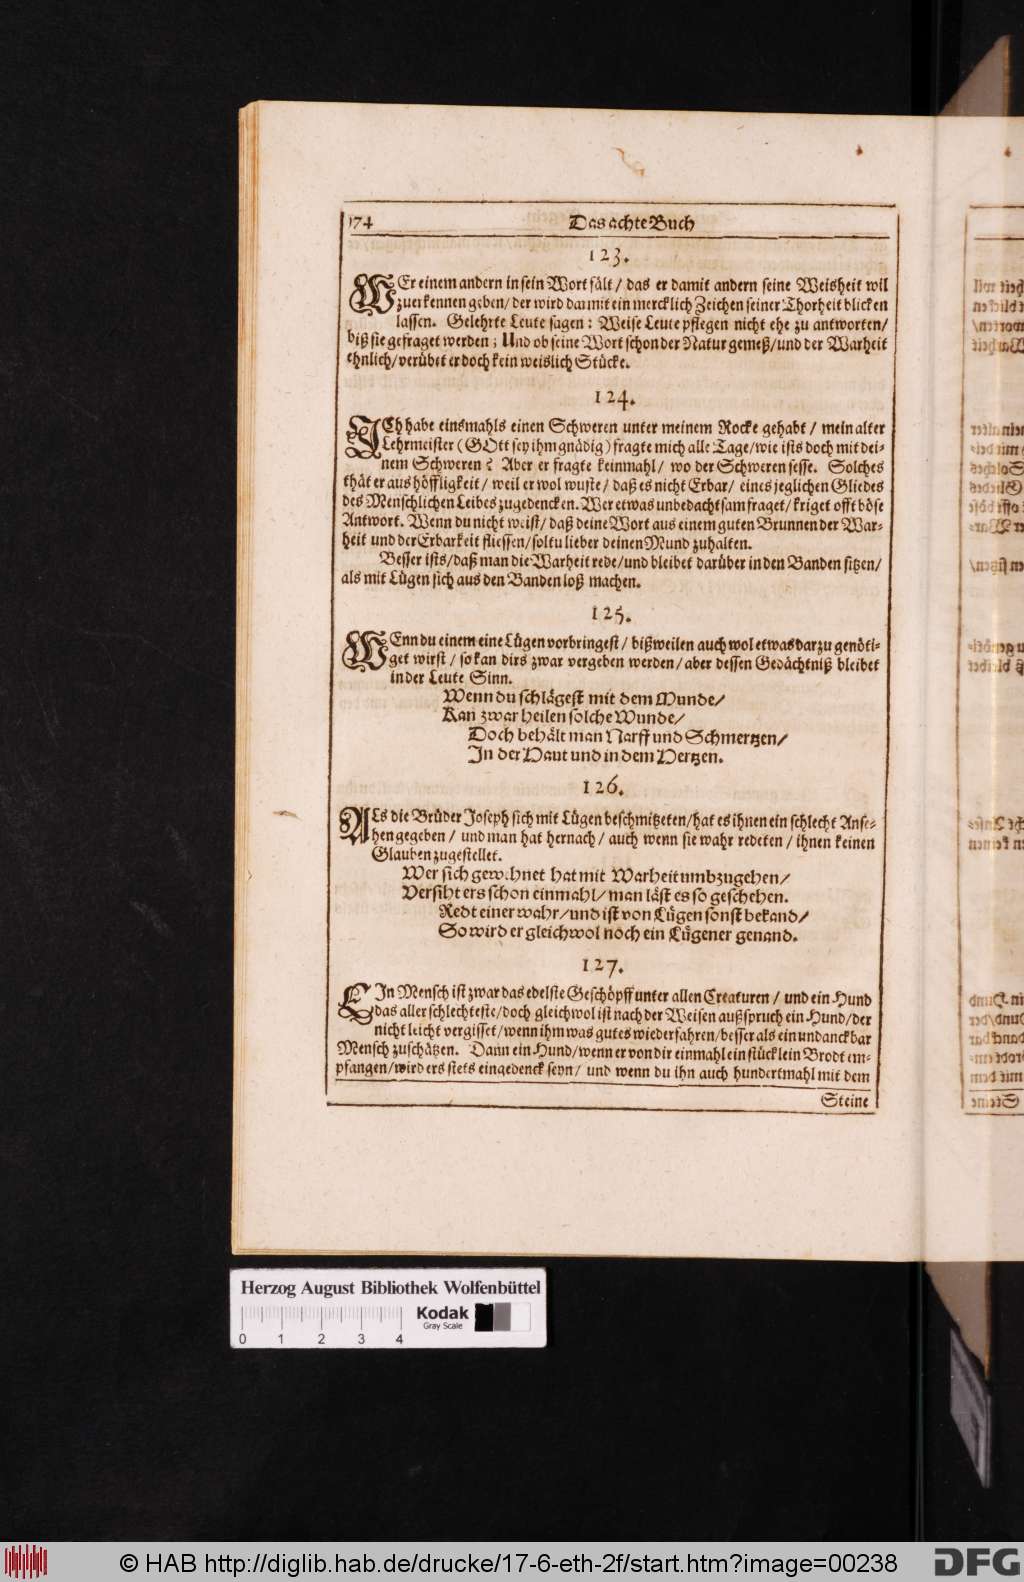 174 Das achte Buch
123.
WEr einem andern in sein Wort fält / das er damit andern seine Weisheit wil
zuerkennen geben / der wird darmit ein mercklich Zeichen seiner Thorheit blicken
lassen. Gelehrte Leute sagen: Weise Leute pflegen nicht ehe zu antworten /
biß sie gefraget werden; Und ob seine Wort schon der Natur gemeß / und der Warheit
ehnlich / verübet er doch kein weislich Stücke.
124.
ICh habe einsmahls einen Schweren unter meinem Rocke gehabt / mein alter
Lehrmeister (GOtt sey ihm gnädig) fragte mich alle Tage / wie ists doch mit dei-
nem Schweren? Aber er fragte keinmahl / wo der Schweren sesse. Solches
thät er aus höffligkeit / weil er wol wuste / daß es nicht Erbar / eines jeglichen Gliedes
des Menschlichen Leibes zugedencken. Wer etwas unbedachtsam fraget / kriget offt böse
Antwort. Wenn du nicht weist / daß deine Wort aus einem guten Brunnen der War-
heit und der Erbarkeit fliessen / soltu lieber deinen Mund zuhalten.
Besser ists / daß man die Warheit rede / und bleibet darüber in den Banden sitzen /
als mit Lügen sich aus den Banden loß machen.
125.
WEnn du einem eine Lügen vorbringest / bißweilen auch wol etwas darzu genöti-
get wirst / so kan dirs zwar vergeben werden / aber dessen Gedächtniß bleibet
in der Leute Sinn.
Wenn du schlägest mit dem Munde /
Kan zwar heilen solche Wunde /
Doch behält man Narff und Schmertzen /
In der Haut und in dem Hertzen.
126.
ALs die Brüder Joseph sich mit Lügen beschmitzeten / hat es ihnen ein schlecht Anse-
hen gegeben / und man hat hernach / auch wenn sie wahr redeten / ihnen keinen
Glauben zugestellet.
Wer sich gewehnet hat mit Warheit umbzugehen /
Versiht ers schon einmahl / man läst es so geschehen.
Redt einer wahr / und ist von Lügen sonst bekand /
So wird er gleichwol noch ein Lügener genand.
127.
EIn Mensch ist zwar das edelste Geschöpff unter allen Creaturen / und ein Hund
das aller schlechteste / doch gleichwol ist nach der Weisen außspruch ein Hund / der
nicht leicht vergisset / wenn ihm was gutes wiederfahren / besser als ein undanckbar
Mensch zuschätzen. Dann ein Hund / wenn er von dir einmahl ein stücklein Brodt em-
pfangen / wird ers stets eingedenck seyn / und wenn du ihn auch hundertmahl mit dem
Steine
Herzog August Bibliothek Wolfenbüttel
0 1 2 3 4
Kodak
Gray Scale
© HAB http://diglib.hab.de/drucke/17-6-eth-2f/start.htm?image=00238
DFG